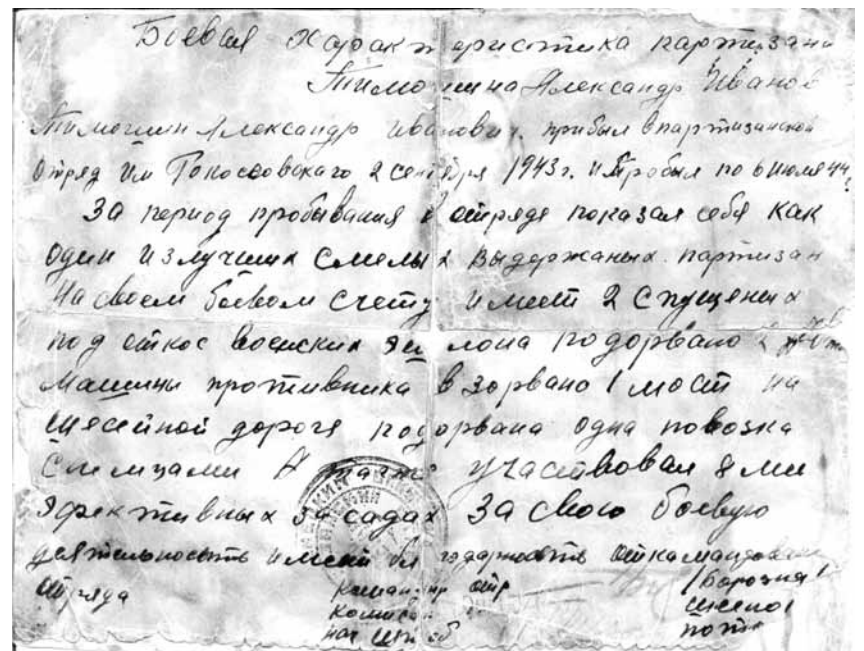 Боевая Характеристика партизана
Тимошина Александр Иванов
Тимошин Александр Иванович. прибыл в партизанской
отряд им Рокоссовскаго 2 сентября 1943г. и пробыл по 6 июля 44
За период пробывания в отряде показал себя как
один из лучших смелых выдержаных партизан
На своем боевом счету имеет 2 спущеных
под откос воинских эшелона подорвано 2
машины противника взорвано 1 мост на
шесейной дороге подорвана одна повозка
с немцами А также участвовал 8 ми
эфективных засадах За свою боевую
деятельность имеет благодарность от камандован
отряда командир отр
комисар
нач шт